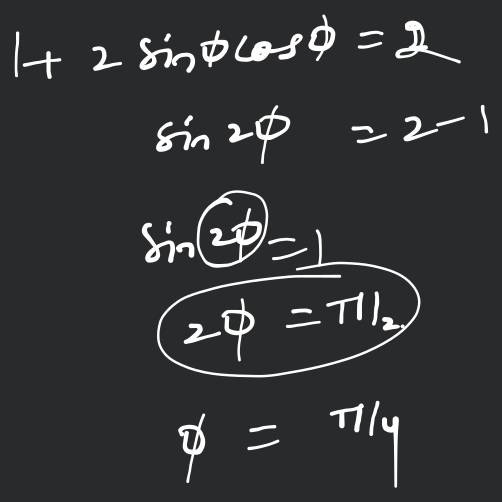 1 + 2 sinφ cosφ = 2
sin 2φ = 2 - 1
sin 2φ = 1
2φ = π/2
φ = π/4